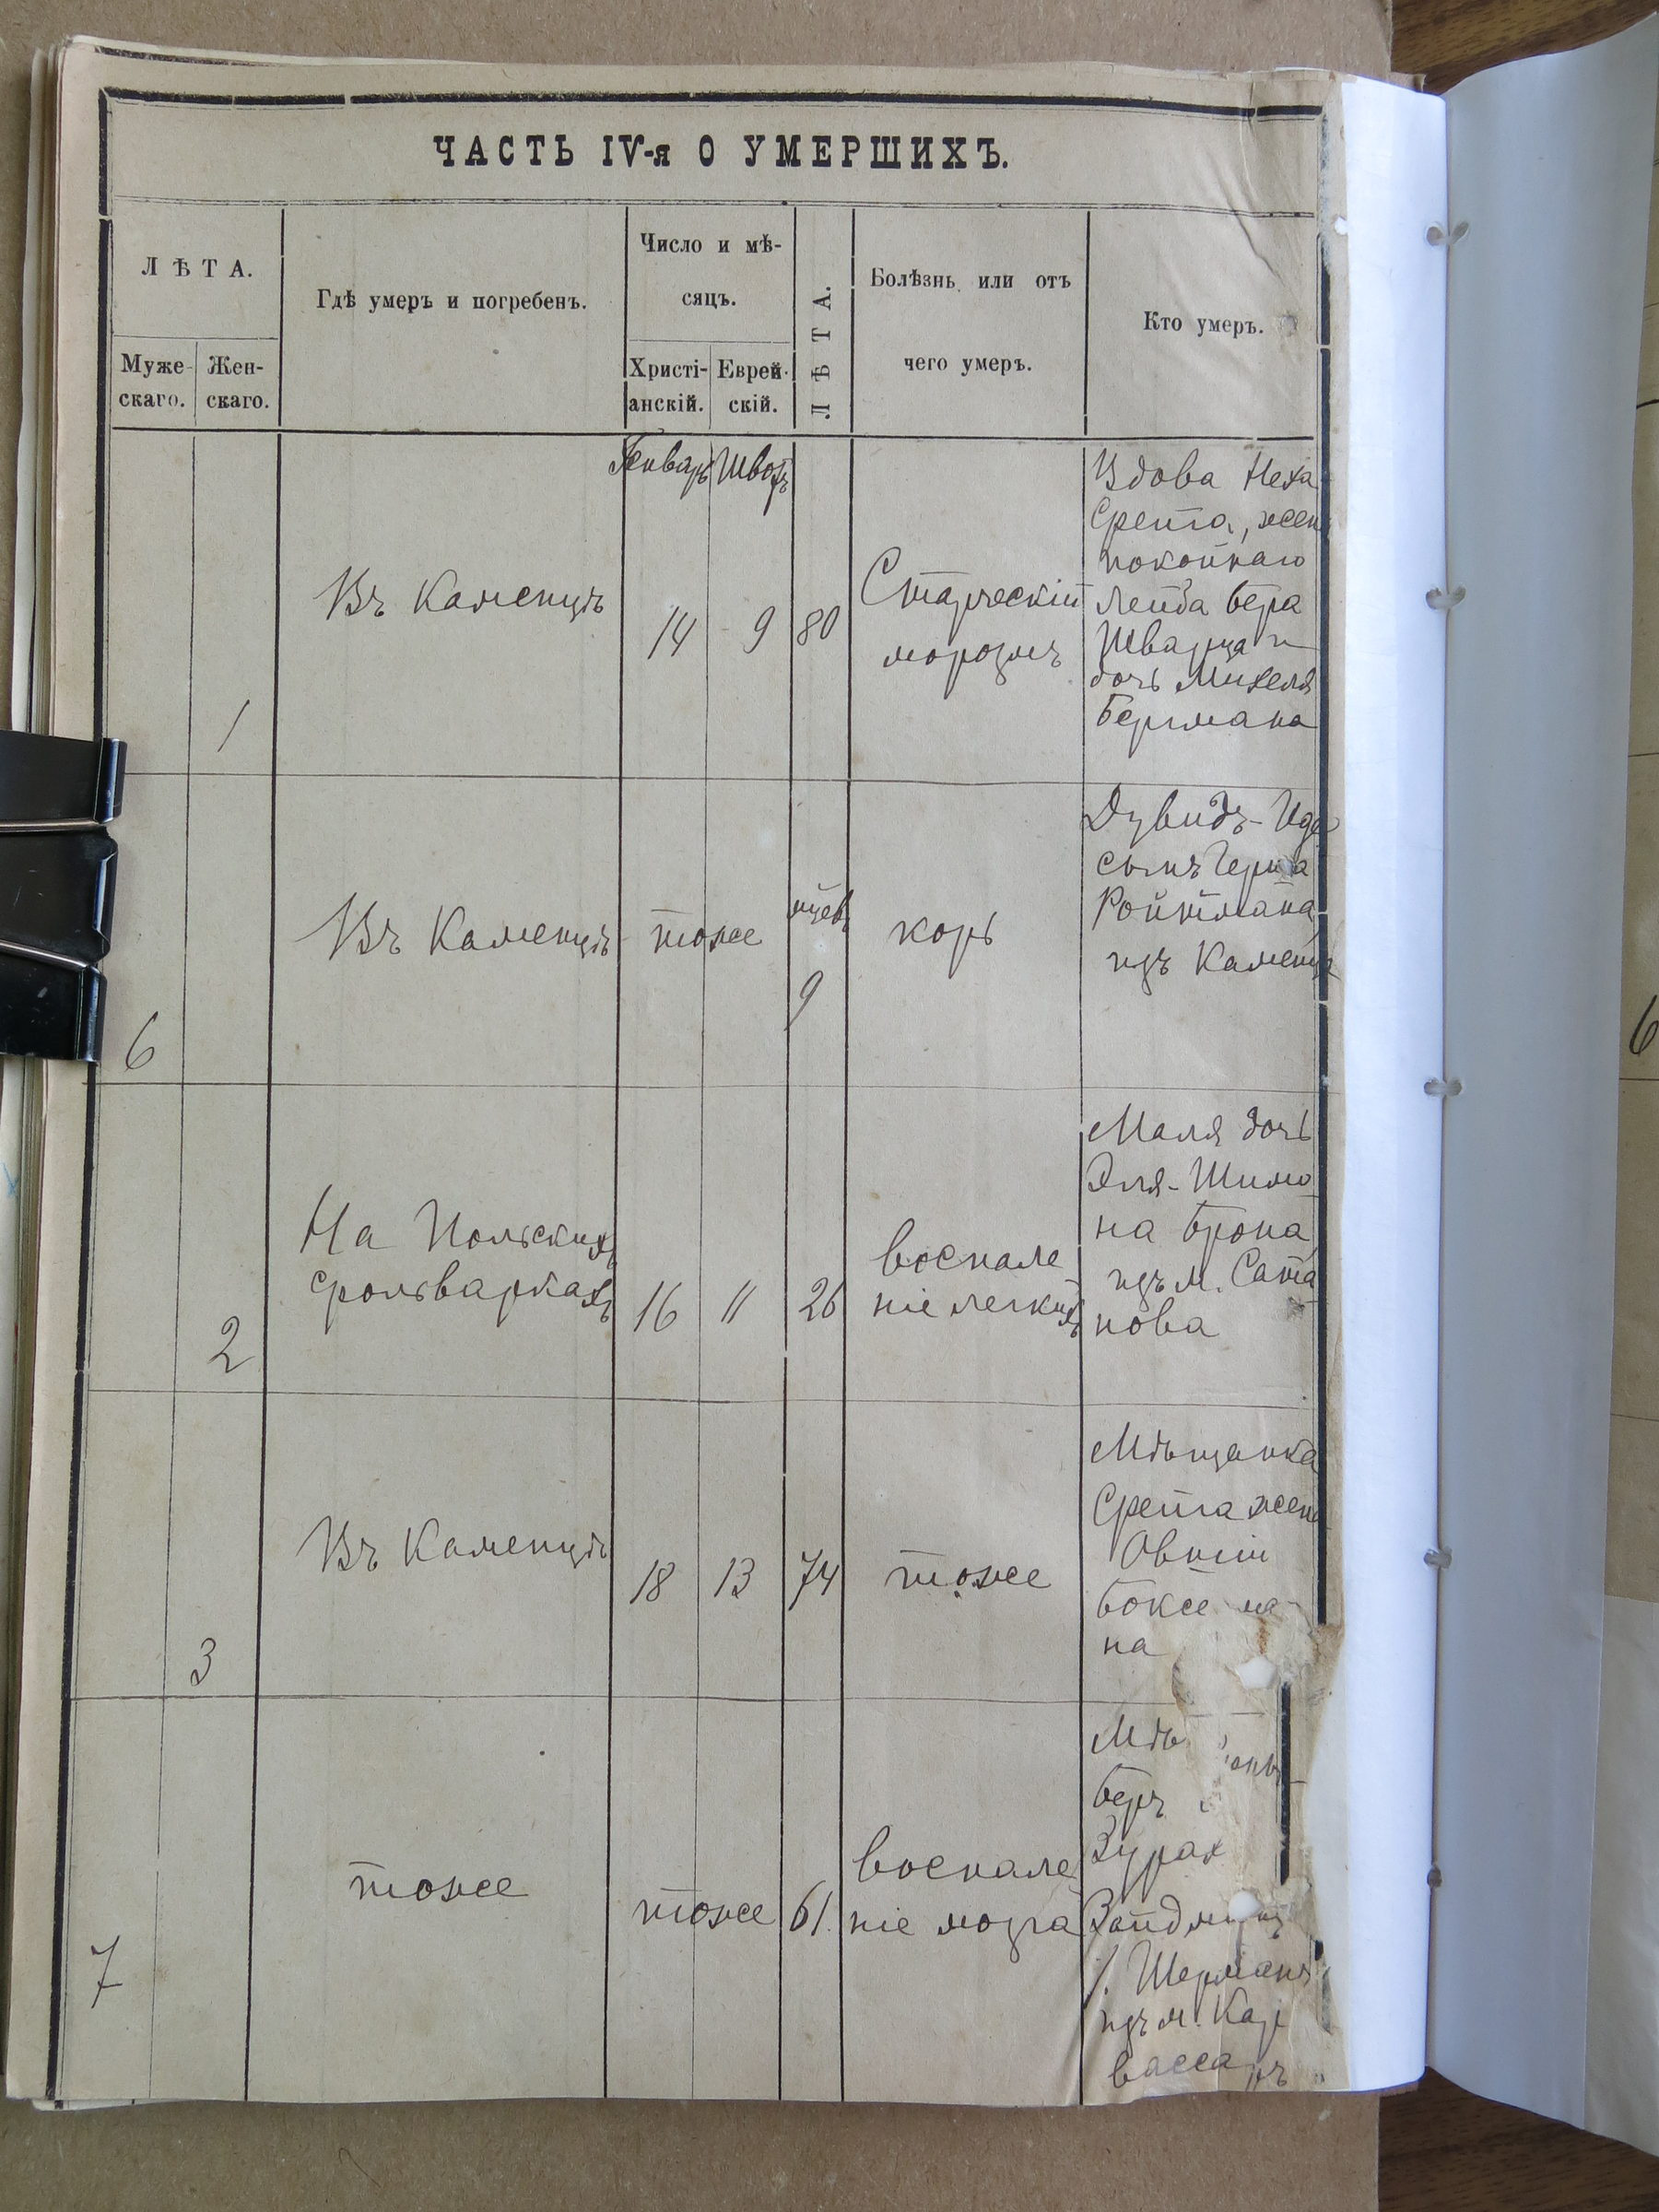 ЧАСТЬ IV-я О УМЕРШИХЪ.
ЛѢТА.
Муже-
скаго.
Жен-
скаго.
Гдѣ умеръ и погребенъ.
Число и мѣ-
сяцъ.
Христі-
анскій.
Еврей-
скій.
ЛѢТА.
Болѣзнь или отъ
чего умеръ.
Кто умеръ.
Генварь
Шватъ
1
Въ Каменцѣ
14
9
80
Старческій
моразмъ
Вдова Неха
Фрейга, жен
покойнаго
Лейба Бера
Шварца и
дочь Михеля
Бергмана
6
Въ Каменцѣ
тоже
мцев
9
корь
Дувидъ-Иде
сынъ Герша
Ройтмана
изъ Каменца
2
На Польскихъ
фольваркахъ
16
11
26
воспале
ніе легкихъ
Маля дочь
Эля-Шимо
на Брона
изъ м. Сата
нова
3
Въ Каменцѣ
18
13
74
тоже
Мѣщанка
Фрейга жена
Овшіи
Боксе ма
на
7
тоже
тоже
61.
воспале
ніе мозга
Мѣ
Беръ
Зурах
Зайдм
Шерманъ
изъ м. Кар
вассаръ
6